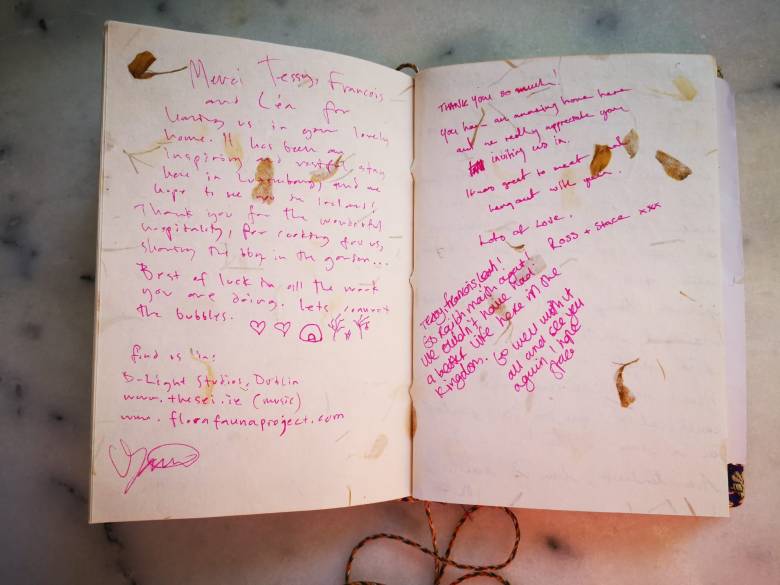 Merci Tessy, Francois
and Léa for
having us in your lovely
home. It has been an
inspiring and restful stay
here in Luxembourg and we
hope to see you in Ireland!
Thank you for the wonderful
hospitality, for cooking for us,
sharing the bbq in the garden...
Best of luck in all the work
you are doing. Lets connect
the bubbles.
find us in:
D-Light Studios, Dublin
www.thesei.ie (music)
www.florafaunaproject.com
THANK YOU SO much!
You have an amazing home here
and we really appreciate your
inviting us in.
It was great to meet and
hang out with you.
Lots of Love,
Ross + Stace xxx
Tessy, Francois, Leah!
So
We couldn't have had
a better time here in the
Kingdom. Go well with it
all and see you
again